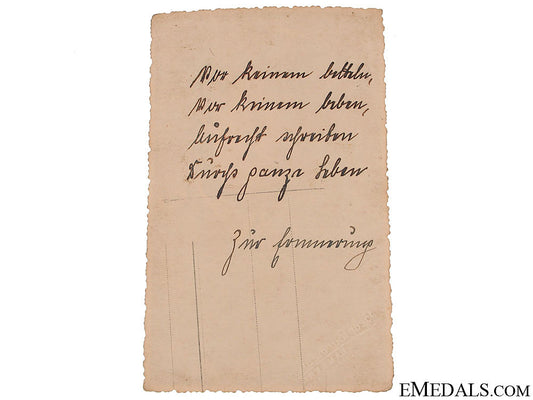 Vor keinem betteln,
Vor keinem beben,
Aufrecht schreiten
Durchs ganze Leben
Zur Erinnerung
EMEDALS.COM